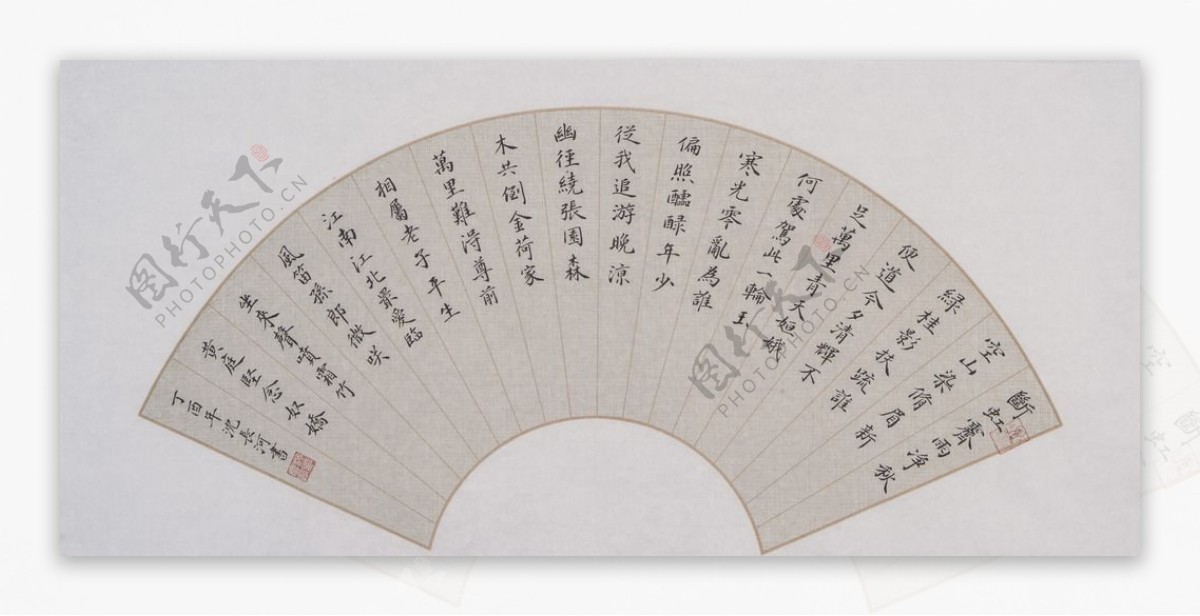 斷虹霽雨淨秋
空山染脩眉新
綠桂影扶疏誰
便道今夕清輝不
足萬里青天姮娥
何處駕此一輪玉
寒光零亂為誰
偏照醽醁年少
從我追游晚涼
幽徑繞張園森
木共倒金荷家
萬里難得尊前
相屬老子平生
江南江北最愛臨
風笛孫郎微咲
坐來聲噴霜竹
黃庭堅念奴嬌
丁酉年沈長河書
图行天下
PHOTOPHOTO.CN
图行天下
PHOTOPHOTO.CN